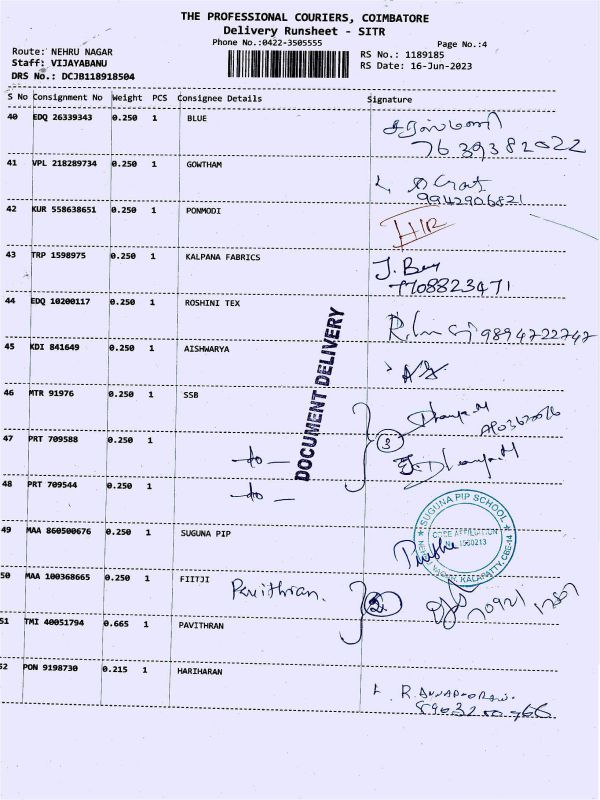 THE PROFESSIONAL COURIERS, COIMBATORE
Delivery Runsheet - SITR
Phone No.:0422-3505555
Page No.:4
Route: NEHRU NAGAR
RS No.: 1189185
Staff: VIJAYABANU
RS Date: 16-Jun-2023
DRS No.: DCJB118918504
S No Consignment No Weight PCS Consignee Details Signature
40 EDQ 26339343 0.250 1 BLUE
7639382022
41 VPL 218289734 0.250 1 GOWTHAM
9942906821
42 KUR 558638651 0.250 1 PONMODI
43 TRP 1598975 0.250 1 KALPANA FABRICS
7708823471
44 EDQ 10200117 0.250 1 ROSHINI TEX
9894722747
45 KDI 841649 0.250 1 AISHWARYA
46 MTR 91976 0.250 1 SSB
DOCUMENT DELIVERY
Dhanya.M
47 PRT 709588 0.250 1 -to- 3
Dhanya.M
48 PRT 709544 0.250 1 -to-
49 MAA 860500676 0.250 1 SUGUNA PIP
SUGUNA PIP SCHOOL
CBSE AFFILIATION
No. 1930213
KALAPATTY, CBE-14
50 MAA 100368665 0.250 1 FIITJI Pavithran. 2
51 TMI 40051794 0.665 1 PAVITHRAN
52 PON 9198730 0.215 1 HARIHARAN